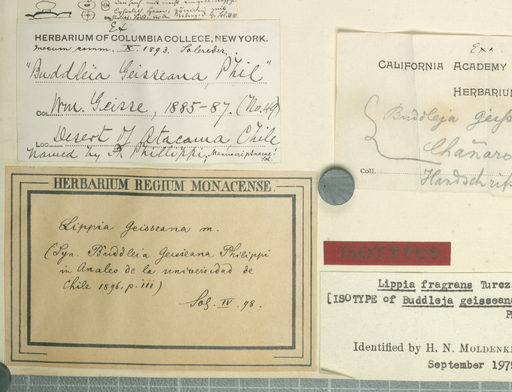 Ex
HERBARIUM OF COLUMBIA COLLEGE, NEW YORK.
mecum comm. X. 1893. Solereder.
"Buddleia Geisseana, Phil"
COL. Wm. Geisse, 1885-87. (No. 44)
LOC. Desert of Atacama, Chile
Named by Phillippi,
HERBARIUM REGIUM MONACENSE
Lippia geisseana m.
(Syn. Buddleia Geisseana Philippi
in Anales de la universidad de
Chile 1896. p. iii)
Sol. IV. 98.
Ex.
CALIFORNIA ACADEMY
HERBARIUM
Buddleja geiss
Chañaro
Coll.
Handschrif
ISOTYPUS
Lippia fragrans Turcz
[ISOTYPE of Buddleja geisseana
P
Identified by H. N. MOLDENK
September 197